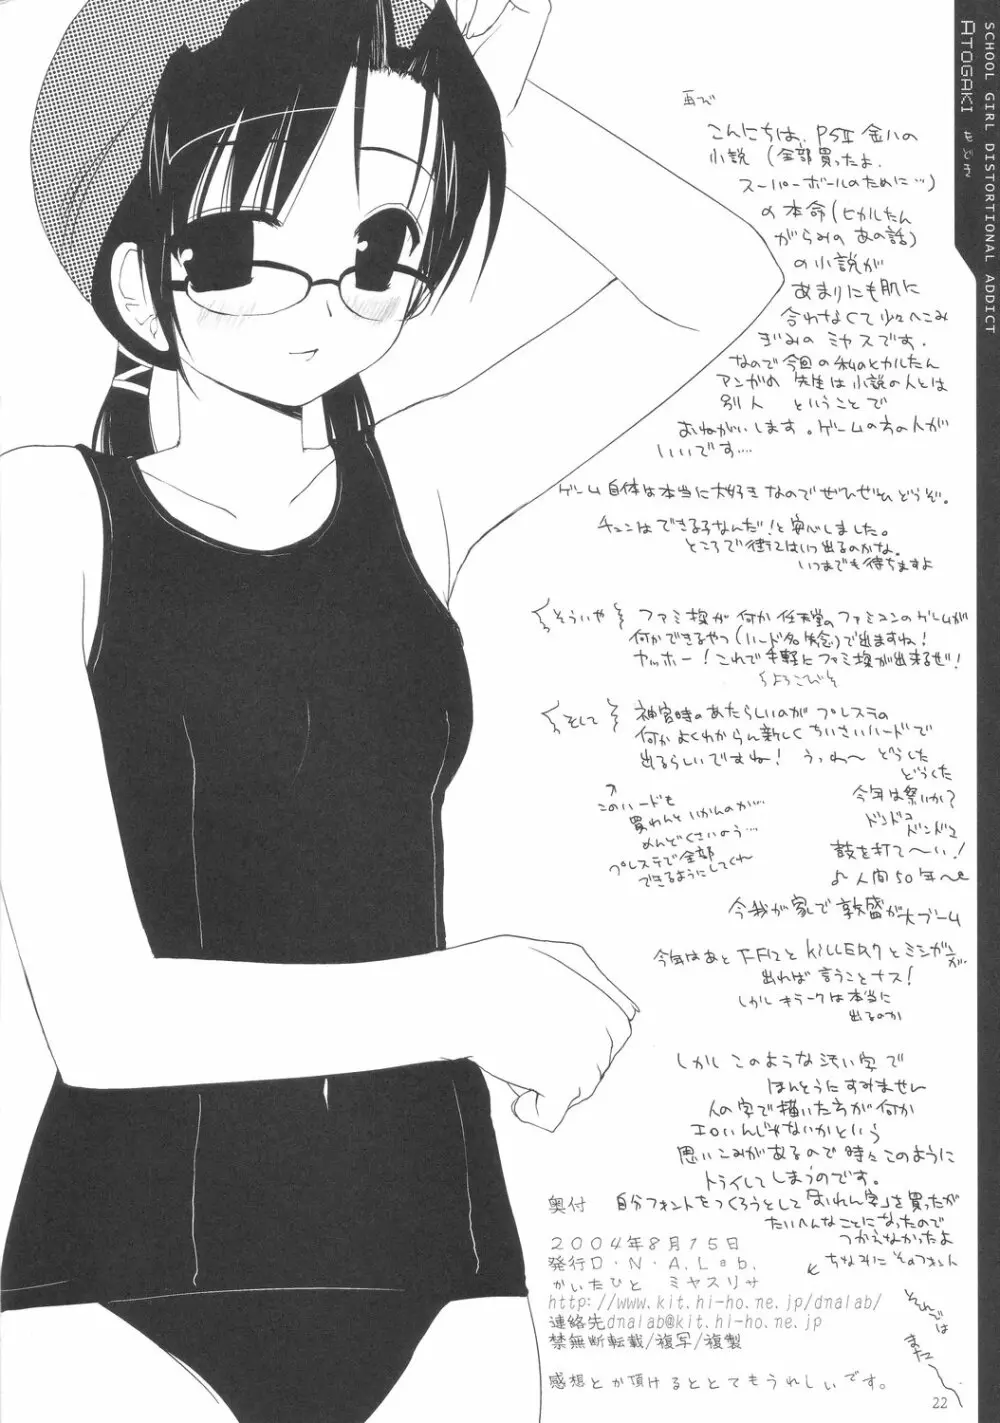 SCHOOL GIRL DISTORTIONAL ADDICT
ATOGAKI もどき
再び
こんにちは、PSⅡ 金八の
小説 (全部買ったよ.
スーパーボールのために…)
の本命(ヒカルたん
がらみの あの話)
の小説が
あまりにも肌に
合わなくて少々へこみ
ぎみの ミヤスです.
なので今回の私のヒカルたん
アンがめ 先生は小説の人とは
別人 ということで
おねがいします。ゲームの方の人が
いいです….
ゲーム自体は本当に大好きなのでぜひぜひどうぞ。
チュンはできる子なんだ!と安心しました。
ところで はいつ出るのかな.
いつまでも待ちますよ
そういや ファミ探が 何か 任天堂のファミコンのゲームが
何かできるやつ(ハード名失念)で出ますね!
ヤッホー!これで手軽にファミ探が出来るぜ!
そして 神宮時のあたらしいのが プレステの
何かよくわからん新しくちいさいハードで
出るらしいですね! うっわ〜 どうくた
どうくた
↗
このハードも
買わんといかんのが…
めんどくさいのよう…
プレステで全部
できるようにしてくれ
今年は祭いか?
ドンドコ
ドンドコ
鼓を打て〜い!
♪人間50年〜
今我が家で敦盛が大ブーム
今年はあと FF12と KILLER7 と ミシガンが
出れば言うことナス!
しかし キラー7は本当に
出るのか
しかし このような汚い字で
ほんとうにすみません
人の字で描いた方が何か
エロいんじゃないかという
思いこみがあるので時々このように
トライしてしまうのです。
奥付 自分フォントをつくろうとして「おれん字」を買ったが
たいへんなことになったので
つかえなかったよ
２００４年８月１５日
発行Ｄ・Ｎ・Ａ.Ｌａｂ.
かいたひと ミヤスリサ
http://www.kit.hi-ho.ne.jp/dnalab/
連絡先dnalab@kit.hi-ho.ne.jp
禁無断転載/複写/複製
ちなみに そのフォント
それでは
また〜
感想とか頂けるととてもうれしいです。
22